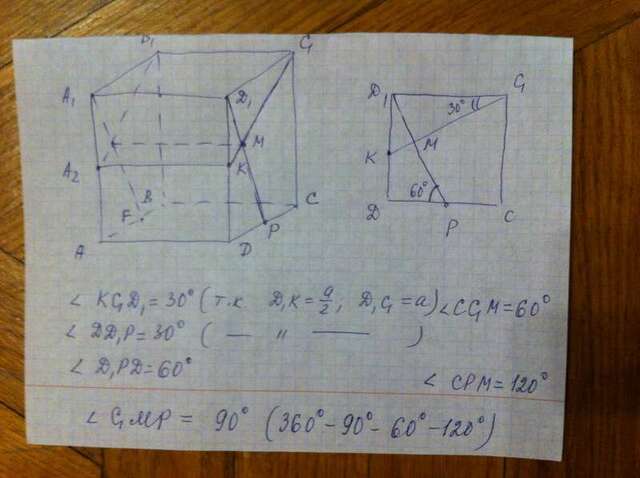 B₁ C₁
A₁ D₁
M
A₂ K
B C
F P
A D
D₁ C₁
30°
K M
60°
D P C
∠ KC₁D₁ = 30° (т.к. D₁K = a/2; D₁C₁ = a) ∠CC₁M = 60°
∠ DD₁P = 30° ( — " — )
∠ D₁PD = 60°
∠ CPM = 120°
∠ C₁MP = 90° (360° - 90° - 60° - 120°)